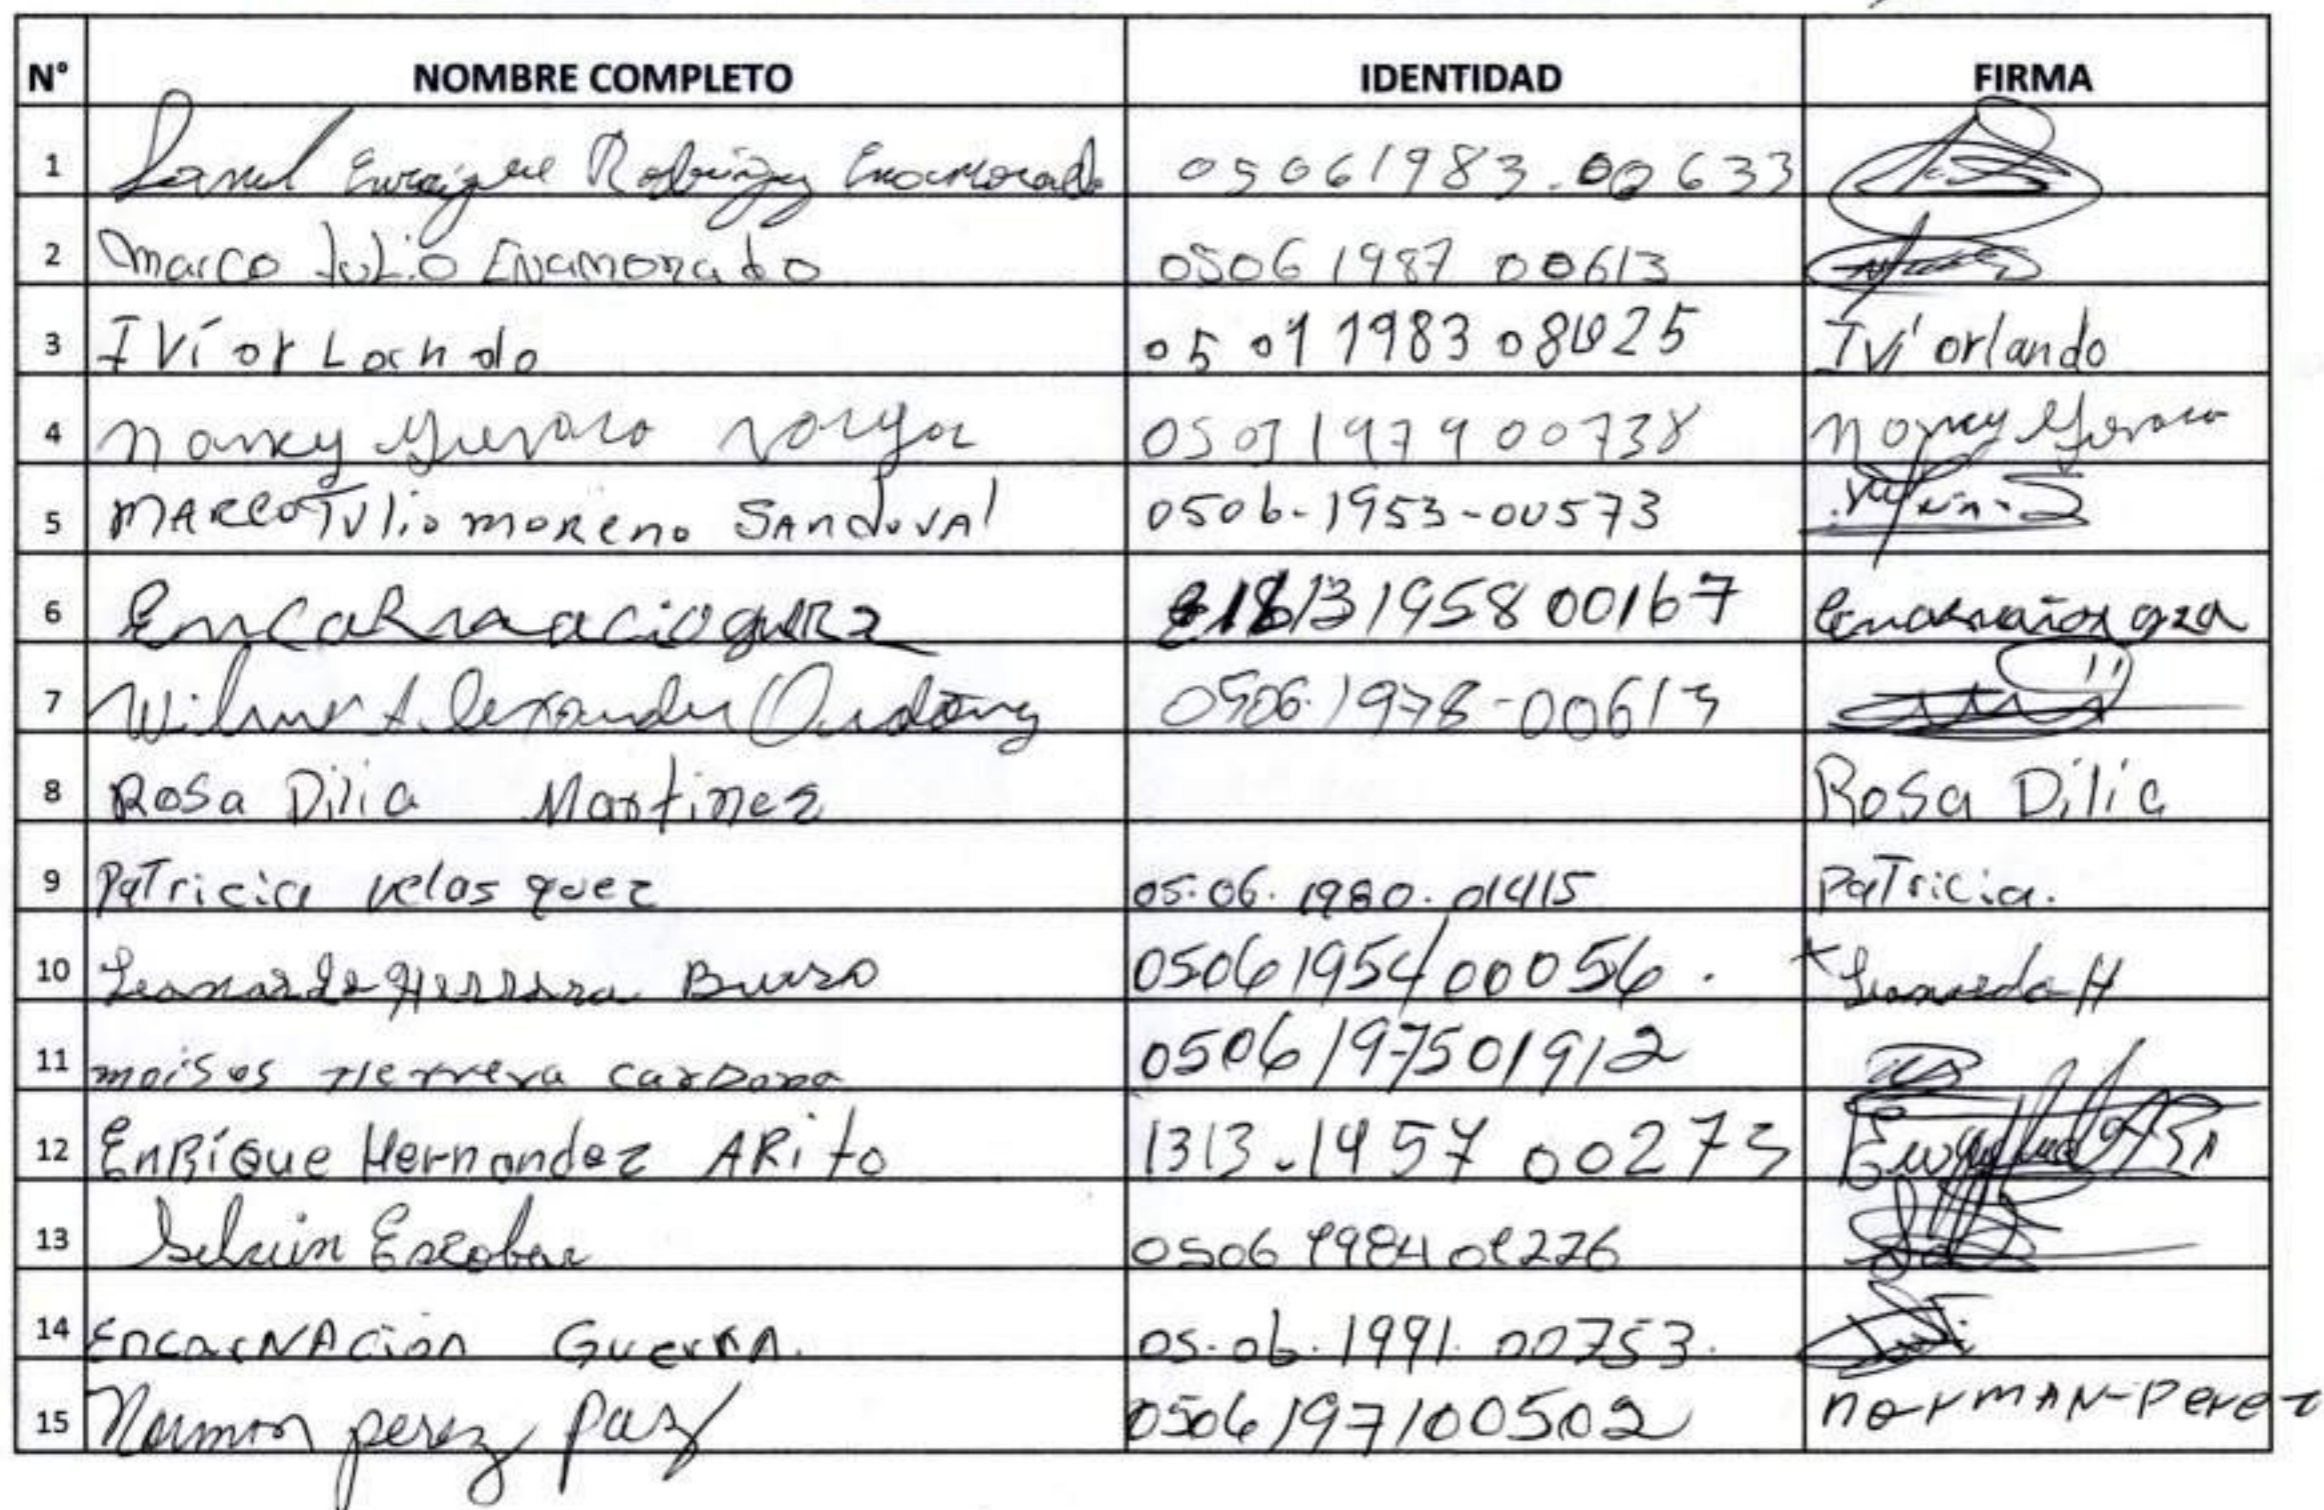 N° NOMBRE COMPLETO IDENTIDAD FIRMA
1 Enrique Rodriguez Enamorado 05061983.00633
2 Marco Tulio Enamorado 0506 1987 00613
3 IVí orLando 05 01 1983 08025 Iví orlando
4 Nancy 0501 1979 00738 Nancy
5 MARCO TULio moReno SAndovAl 0506-1953-00573
6 1958 00167
7 Wilmer Alexander 0506-1978-00613
8 Rosa Dilia Martinez Rosa Dilia
9 PaTricia velasquez 05.06.1980.01415 PaTricia.
10 Leonardo Herrera 0506195400056. Leonardo H
11 moises Herrera carDona 0506197501912
12 EnRíQue Hernandez ARito 1313.1957 00273
13 Selvin Escobar 0506 1984 01226
14 EncarNAcion GuerRA. 05.06.1991.00753.
15 Norman perez paz 0506197100502 norMAN-Perez